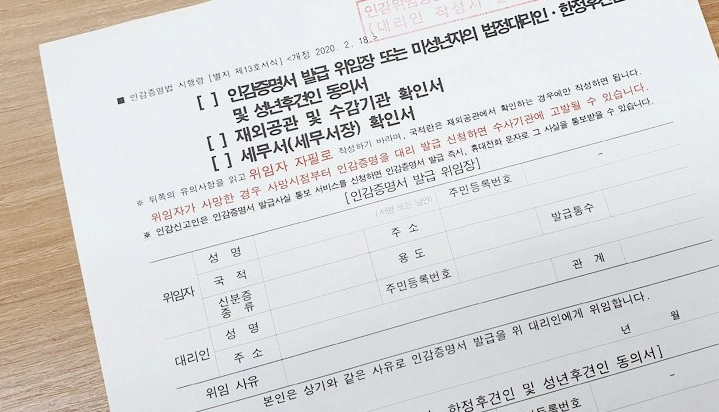 (대리인 작성시
■ 인감증명법 시행령 [별지 제13호서식] <개정 2020. 2. 18.>
[ ] 인감증명서 발급 위임장 또는 미성년자의 법정대리인·한정후견인
및 성년후견인 동의서
[ ] 재외공관 및 수감기관 확인서
[ ] 세무서(세무서장) 확인서
※ 뒤쪽의 유의사항을 읽고 위임자 자필로 작성하기 바라며, 국적란은 재외공관에서 확인하는 경우에만 작성하면 됩니다.
위임자가 사망한 경우 사망시점부터 인감증명을 대리 발급 신청하면 수사기관에 고발될 수 있습니다.
※ 인감신고인은 인감증명서 발급사실 통보 서비스를 신청하면 인감증명서 발급 즉시, 휴대전화 문자로 그 사실을 통보받을 수 있습니다.
[인감증명서 발급 위임장]
위임자
성 명
(서명 또는 날인)
주민등록번호
-
국 적
주 소
신분증 종류
용 도
발급통수
대리인
성 명
주민등록번호
-
주 소
관 계
위임 사유
본인은 상기와 같은 사유로 인감증명서 발급을 위 대리인에게 위임합니다.
년 월
한정후견인 및 성년후견인 동의서]
주민등록번호
-